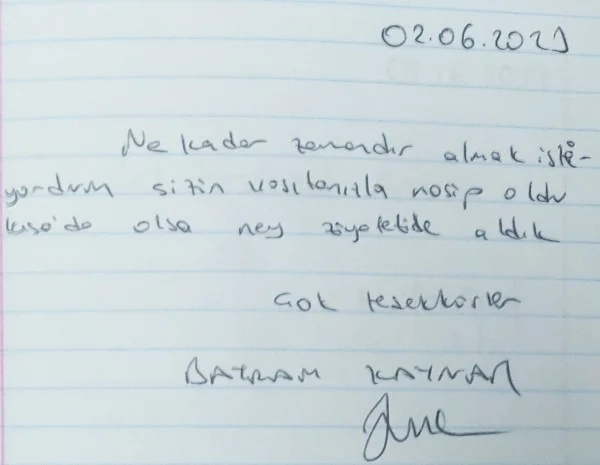 02.06.2021
Ne kadar zamandır almak isti-
yordum sizin vasıtanızla nasip oldu
kısa'da olsa ney ziyafetide aldık
Çok teşekkürler
BAYRAM KAYNAR